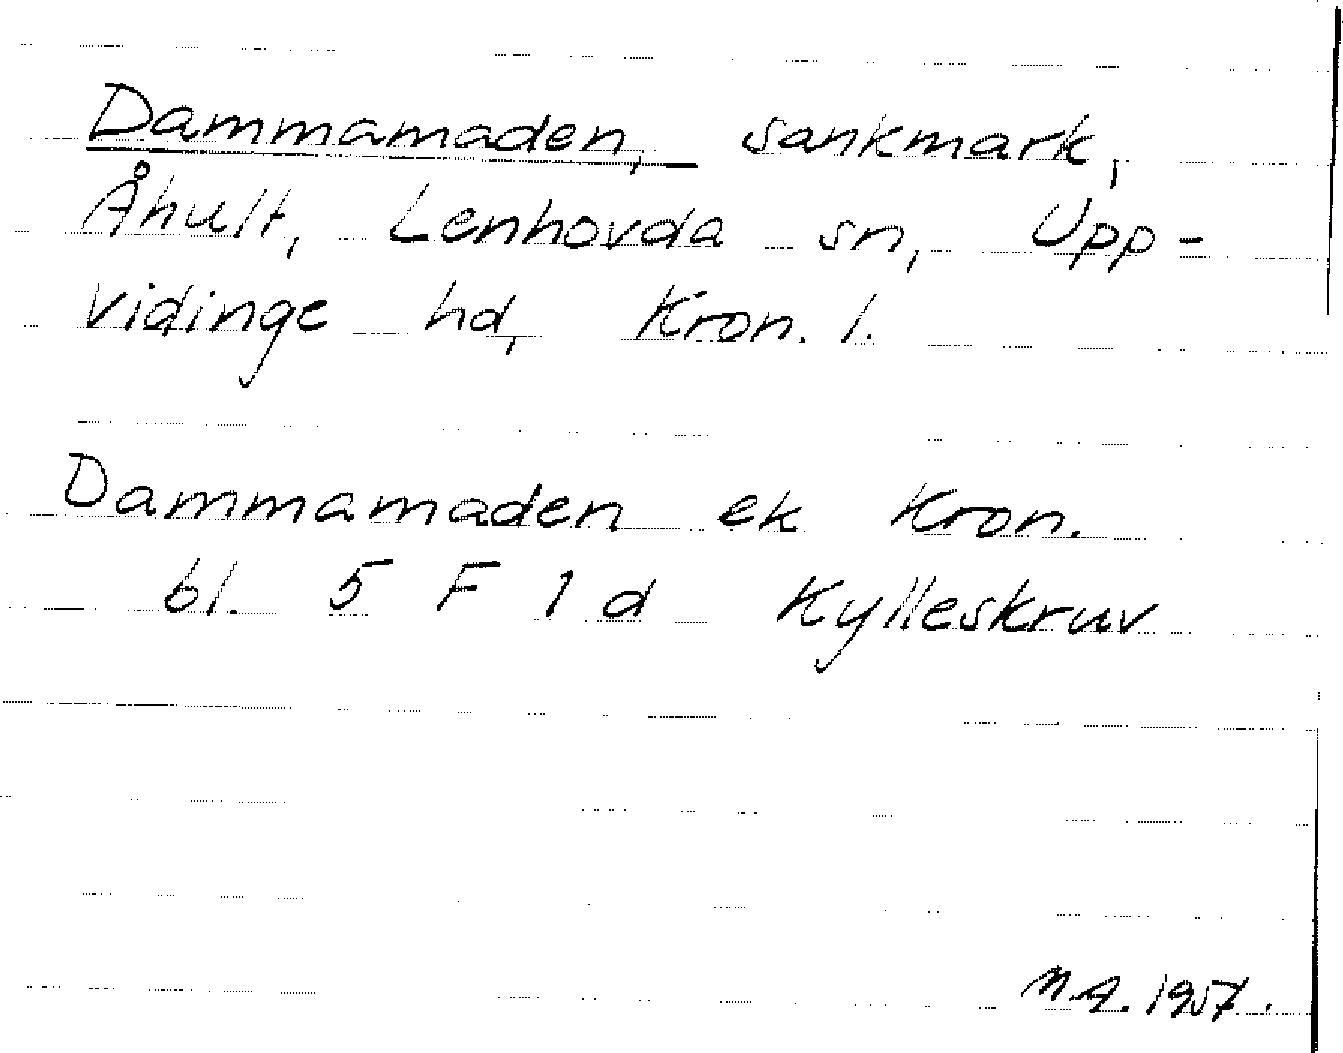 Dammamaden, sankmark,
Åhult, Lenhovda sn, Upp-
vidinge hd, Kron. l.
Dammamaden ek Kron.
bl. 5 F 1 d Kylleskruv
M.A. 1957.